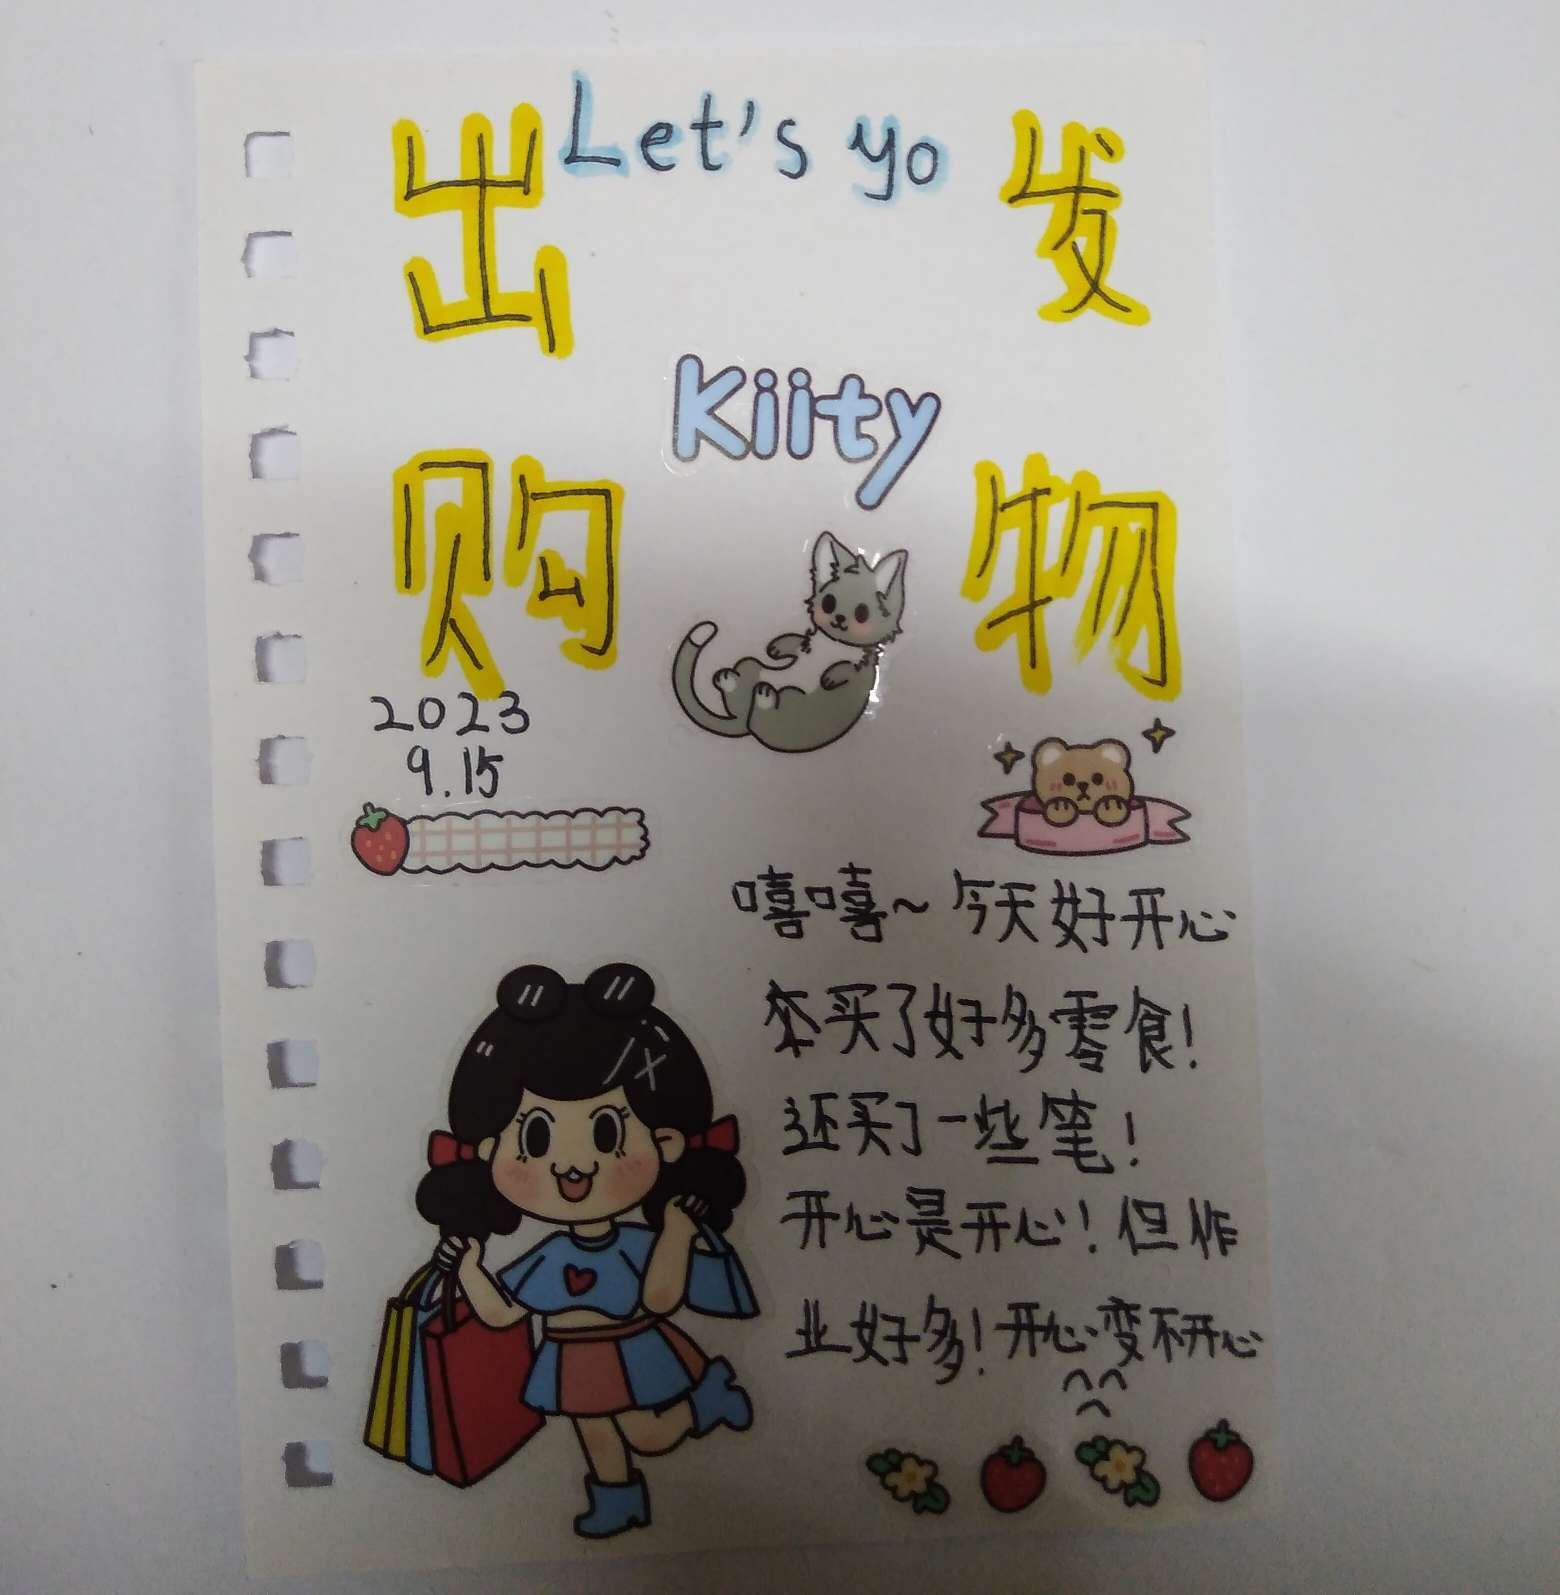 出 Let's yo 发
Kiity
购 物
2023
9.15
嘻嘻~今天好开心
买了好多零食!
还买了一些笔!
开心是开心!但作
业好多!开心变不开心